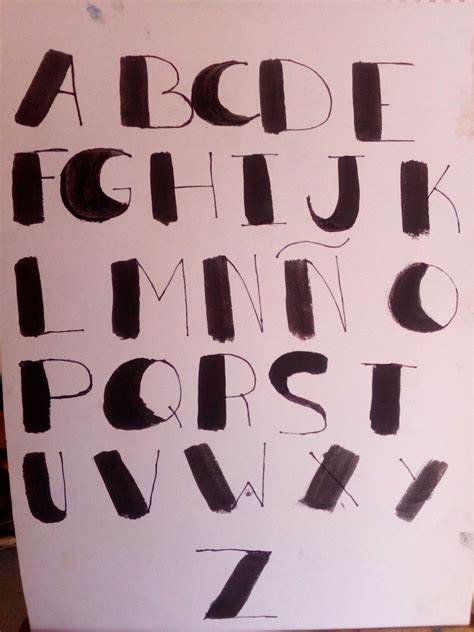 A B C D E
F G H I J K
L M N Ñ O
P Q R S T
U V W X Y
Z